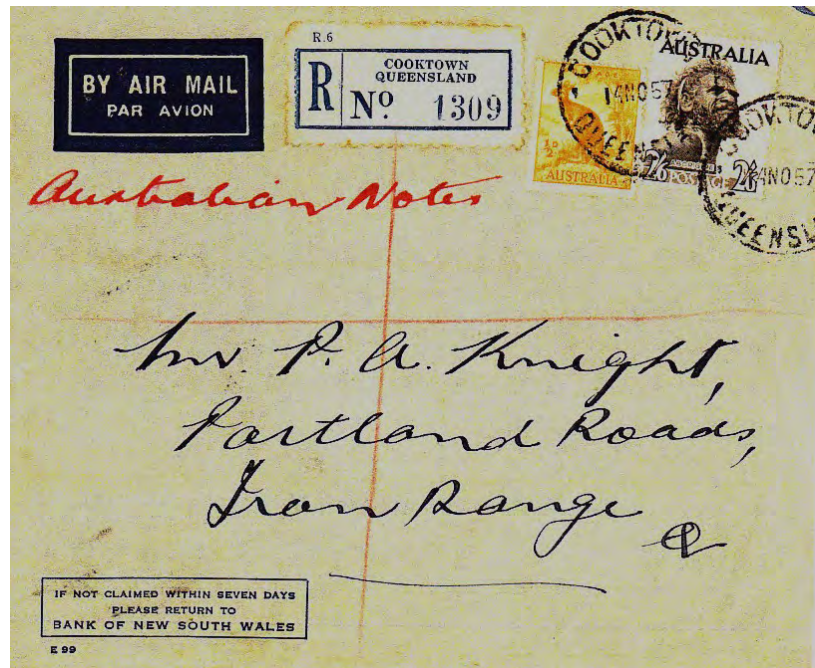 BY AIR MAIL
PAR AVION
R.6
COOKTOWN
QUEENSLAND
R No 1309
COOKTOW
14NO57
QUEENSL
½D
AUSTRALIA
AUSTRALIA
2/6 POSTAGE 2/6
COOKTOW
14NO57
QUEENSL
Australian Notes
Mr. P. A. Knight,
Portland Roads,
Iron Range
Q
IF NOT CLAIMED WITHIN SEVEN DAYS
PLEASE RETURN TO
BANK OF NEW SOUTH WALES
E 99